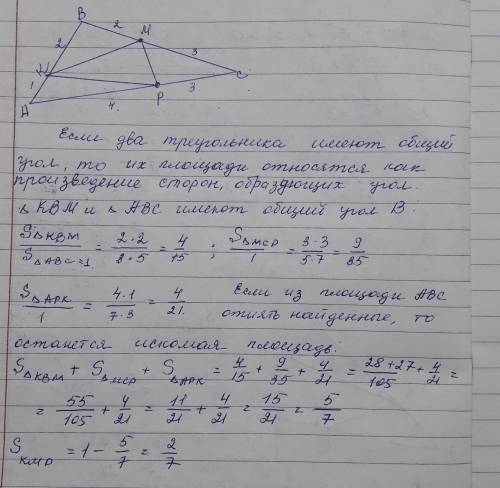 B
2
M
2
3
K
C
1
P
3
A
4.
Если два треугольника имеют общий
угол, то их площади относятся как
произведение сторон, образующих угол.
Δ KBM и Δ ABC имеют общий угол B.
SΔKBM / SΔABC=1 = 2·2 / 3·5 = 4/15 ; SΔMCP / 1 = 3·3 / 5·7 = 9/35
SΔAPK / 1 = 4·1 / 7·3 = 4/21. Если из площади ABC
отнять найденные, то
останется искомая площадь:
SΔKBM + SΔMCP + SΔAPK = 4/15 + 9/35 + 4/21 = 28+27/105 + 4/21 =
= 55/105 + 4/21 = 11/21 + 4/21 = 15/21 = 5/7
SKMP = 1 - 5/7 = 2/7